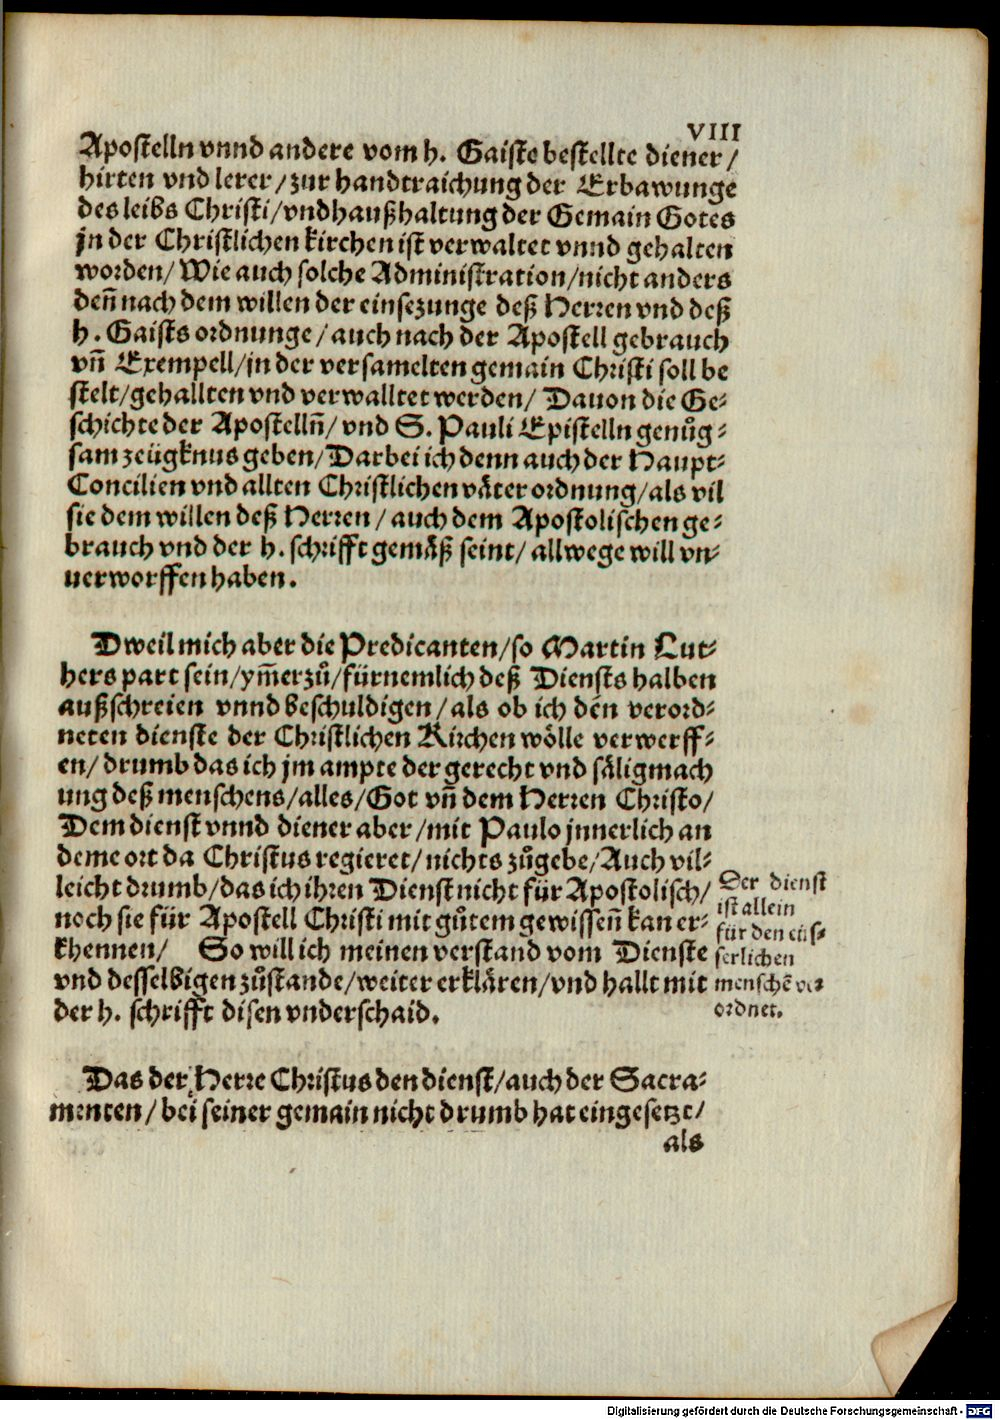 VIII
Apostelln vnnd andere vom h. Gaiste bestellte diener/
hirten vnd lerer/zur handtraichung der Erbawunge
des leibs Christi/vnd haußhaltung der Gemain Gotes
jn der Christlichen kirchen ist verwaltet vnnd gehalten
worden/Wie auch solche Administration/nicht anders
deñ nach dem willen der einsezunge deß Herren vnd deß
h. Gaists ordnunge/auch nach der Apostell gebrauch
vñ Exempell/jn der versamelten gemain Christi soll be
stelt/gehallten vnd verwalltet werden/ Dauon die Ge-
schichte der Apostellñ/ vnd S. Pauli Epistelln genůg-
sam zeügknus geben/Darbei ich denn auch der Haupt-
Concilien vnd allten Christlichen väter ordnung/als vil
sie dem willen deß Herren/auch dem Apostolischen ge-
brauch vnd der h. schrifft gemäß seint/allwege will vn-
uerworffen haben.
Dweil mich aber die Predicanten/so Martin Lut-
hers part sein/ym̃erzů/fürnemlich deß Diensts halben
außschreien vnnd beschuldigen/als ob ich den verord-
neten dienste der Christlichen Kirchen wölle verwerff-
en/drumb das ich jm ampte der gerecht vnd säligmach
ung deß menschens/alles/Got vñ dem Herren Christo/
Dem dienst vnnd diener aber/mit Paulo jnnerlich an
deme ort da Christus regieret/nichts zůgebe/Auch vil-
leicht drumb/das ich ihren Dienst nicht für Apostolisch/
noch sie für Apostell Christi mit gůtem gewisseñ kan er-
khennen/ So will ich meinen verstand vom Dienste
vnd desselbigen zůstande/weiter erklären/vnd hallt mit
der h. schrifft disen vnderschaid.
Der dienst
ist allein
für den eüs-
serlichen
menschẽ ver
ordnet.
Das der Herre Christus den dienst/auch der Sacra-
menten/bei seiner gemain nicht drumb hat eingesetzt/
als
Digitalisierung gefördert durch die Deutsche Forschungsgemeinschaft - DFG